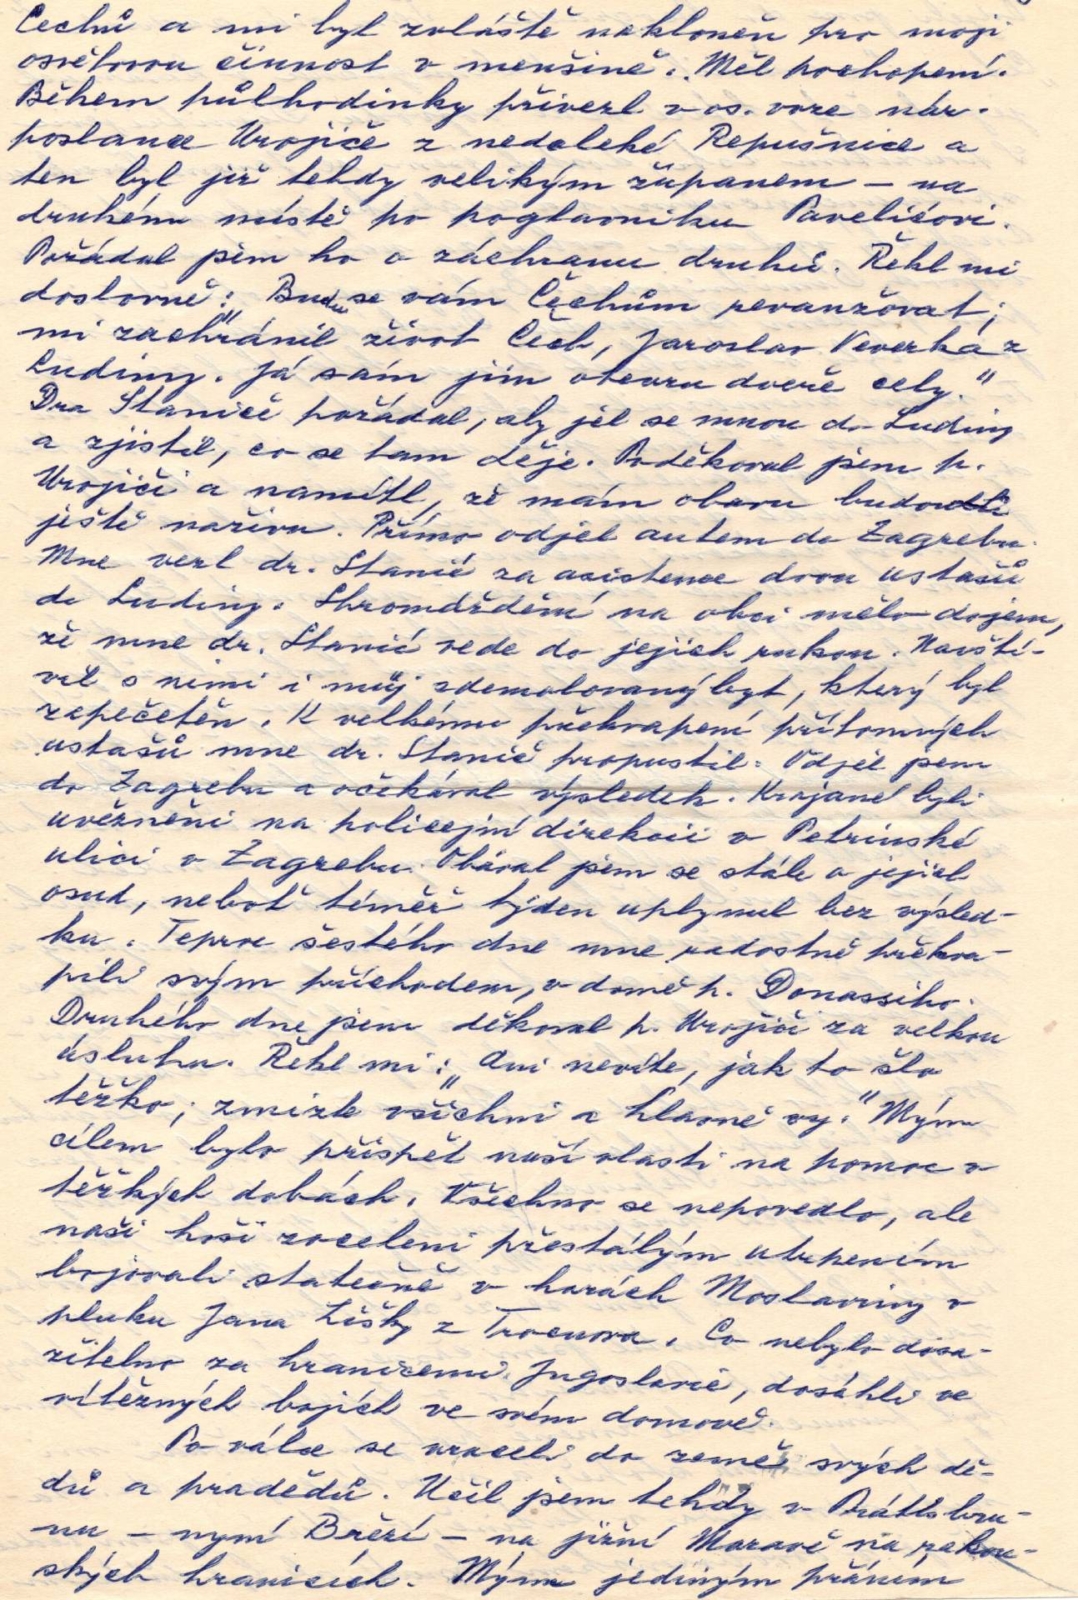 Čechů a mi byl zvláště nakloněn pro moji
osvětovou činnost v menšině. Měl pochopení.
Během půlhodinky přivezl v os. voze nár.
poslance Urojiče z nedaleké Repušnice a
ten byl již tehdy velikým županem – na
druhém místě po poglavniku Paveličovi.
Požádal jsem ho o záchranu druhů. Řekl mi
doslovně: „Budu se vám Čechům revanžovat;
mi zachránil život Čech, Jaroslav Veverka z
Ludiny. Já sám jim otevru dveře cely."
Dra Staniče požádal, aby jel se mnou do Ludiny
a zjistil, co se tam děje. Poděkoval jsem p.
Urojiči a namítl, že mám obavu budou-li
ještě naživu. Přímo odjel autem do Zagrebu.
Mne vezl dr. Stanič za asistence dvou ustašů
do Ludiny. Shromáždění na obci mělo dojem,
že mne dr. Stanič vede do jejich rukou. Navští-
vil s nimi i můj zdemolovaný byt, který byl
zapečetěn. K velkému překvapení přítomných
ustašů mne dr. Stanič propustil. Odjel jsem
do Zagrebu a očekával výsledek. Krajané byli
uvězněni na policejní direkcii v Petrinské
ulici v Zagrebu. Obával jsem se stále o jejich
osud, neboť téměř týden uplynul bez výsled-
ku. Teprve šestého dne mne radostně překva-
pili svým příchodem, v domě p. Donassiho.
Druhého dne jsem děkoval p. Urojiči za velkou
úsluhu. Řekl mi: „Ani nevíte, jak to šlo
těžko; zmizte všichni a hlavně vy." Mým
cílem bylo přispět naší vlasti na pomoc v
těžkých dobách. Všechno se nepovedlo, ale
naši hoši zoceleni přestálým utrpením
bojovali statečně v horách Moslaviny v
pluku Jana Žižky z Trocnova. Co nebylo dosa-
žitelno za hranicemi Jugoslavie, dosáhli ve
vítězných bojích ve svém domově.
Po válce se vraceli do země svých dě-
dů a pradědů. Učil jsem tehdy v Prátlsbru-
nu – nyní Březí – na jižní Moravě na rakou-
ských hranicích. Mým jediným přáním